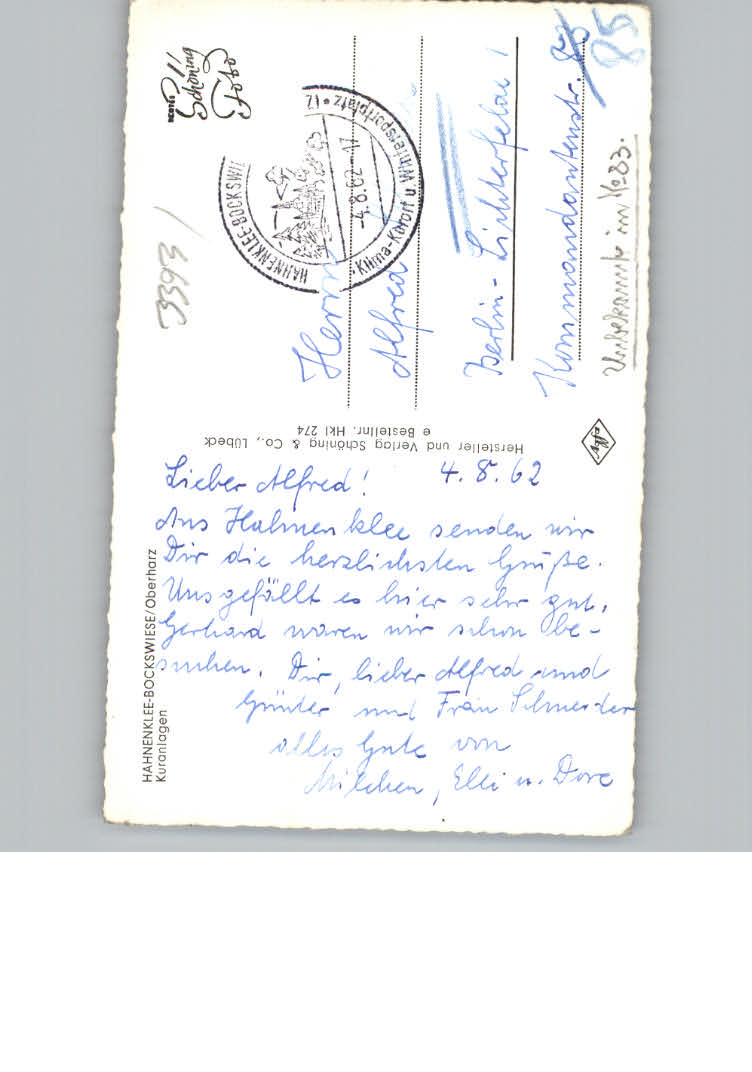 Lieber Alfred! 4.8.62
Aus Hahnenklee senden wir
Dir die herzlichsten Grüße.
Uns gefällt es hier sehr gut.
Gerhard waren wir schon be-
suchen. Dir, lieber Alfred und
Günter und Frau Schneider
alles Gute von
Milchen, Elli u. Dore
HAHNENKLEE-BOCKSWIESE/Oberharz
Kuranlagen
Hersteller und Verlag Schöning & Co., Lübeck
e Bestellnr. Hkl 274
Agfa
Schöning
Foto
HAHNENKLEE-BOCKSWIE
Klima-Kurort u. Wintersportplatz
-4.8.62-17
3393
Herrn
Alfred
Berlin-Lichterfelde 1
Kommandantenstr. 83
85
Unbekannt in No 83.